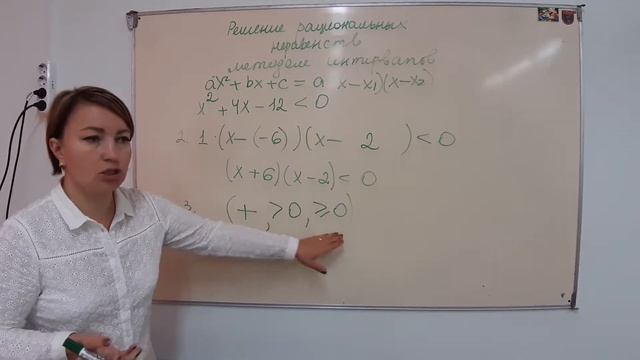 Решение рациональных
неравенств
методом интервалов
ax²+bx+c=a x-x₁)(x-x₂)
x²+4x-12<0
2. 1·(x-(-6))(x- 2 )<0
(x+6)(x-2)<0
3. (+,>0,≥0)